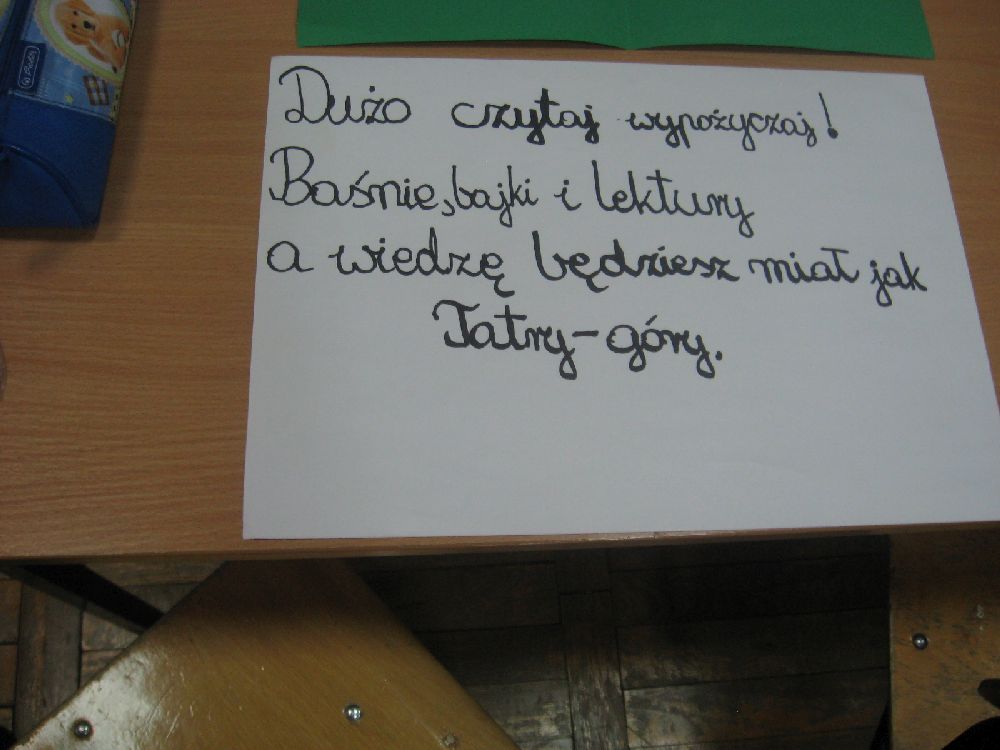 Dużo czytaj wypożyczaj!
Baśnie, bajki i lektury
a wiedzę będziesz miał jak
Tatry-góry.